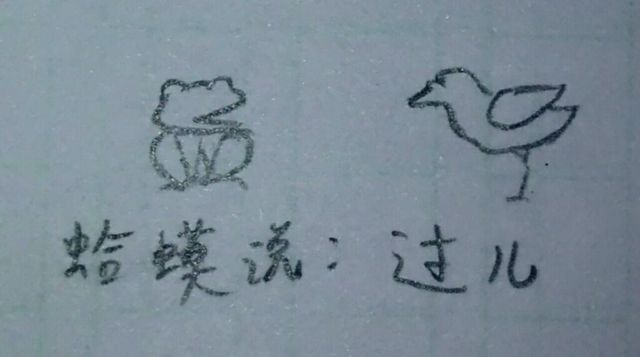 蛤蟆说：过儿